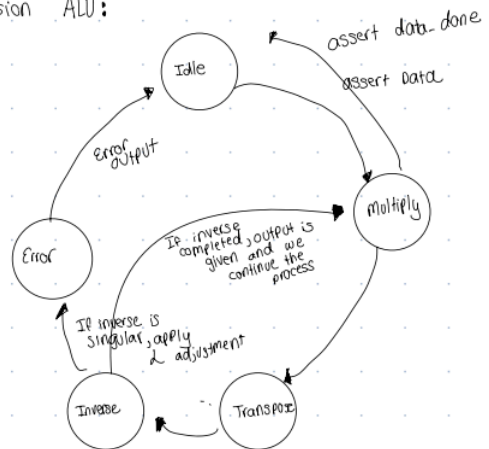 sion ALU:
assert data_done
Idle
assert Data
Error
output
Multiply
If inverse
completed, output is
given and we
continue the
process
Error
If inverse is
singular, apply
λ adjustment
Inverse
Transpose